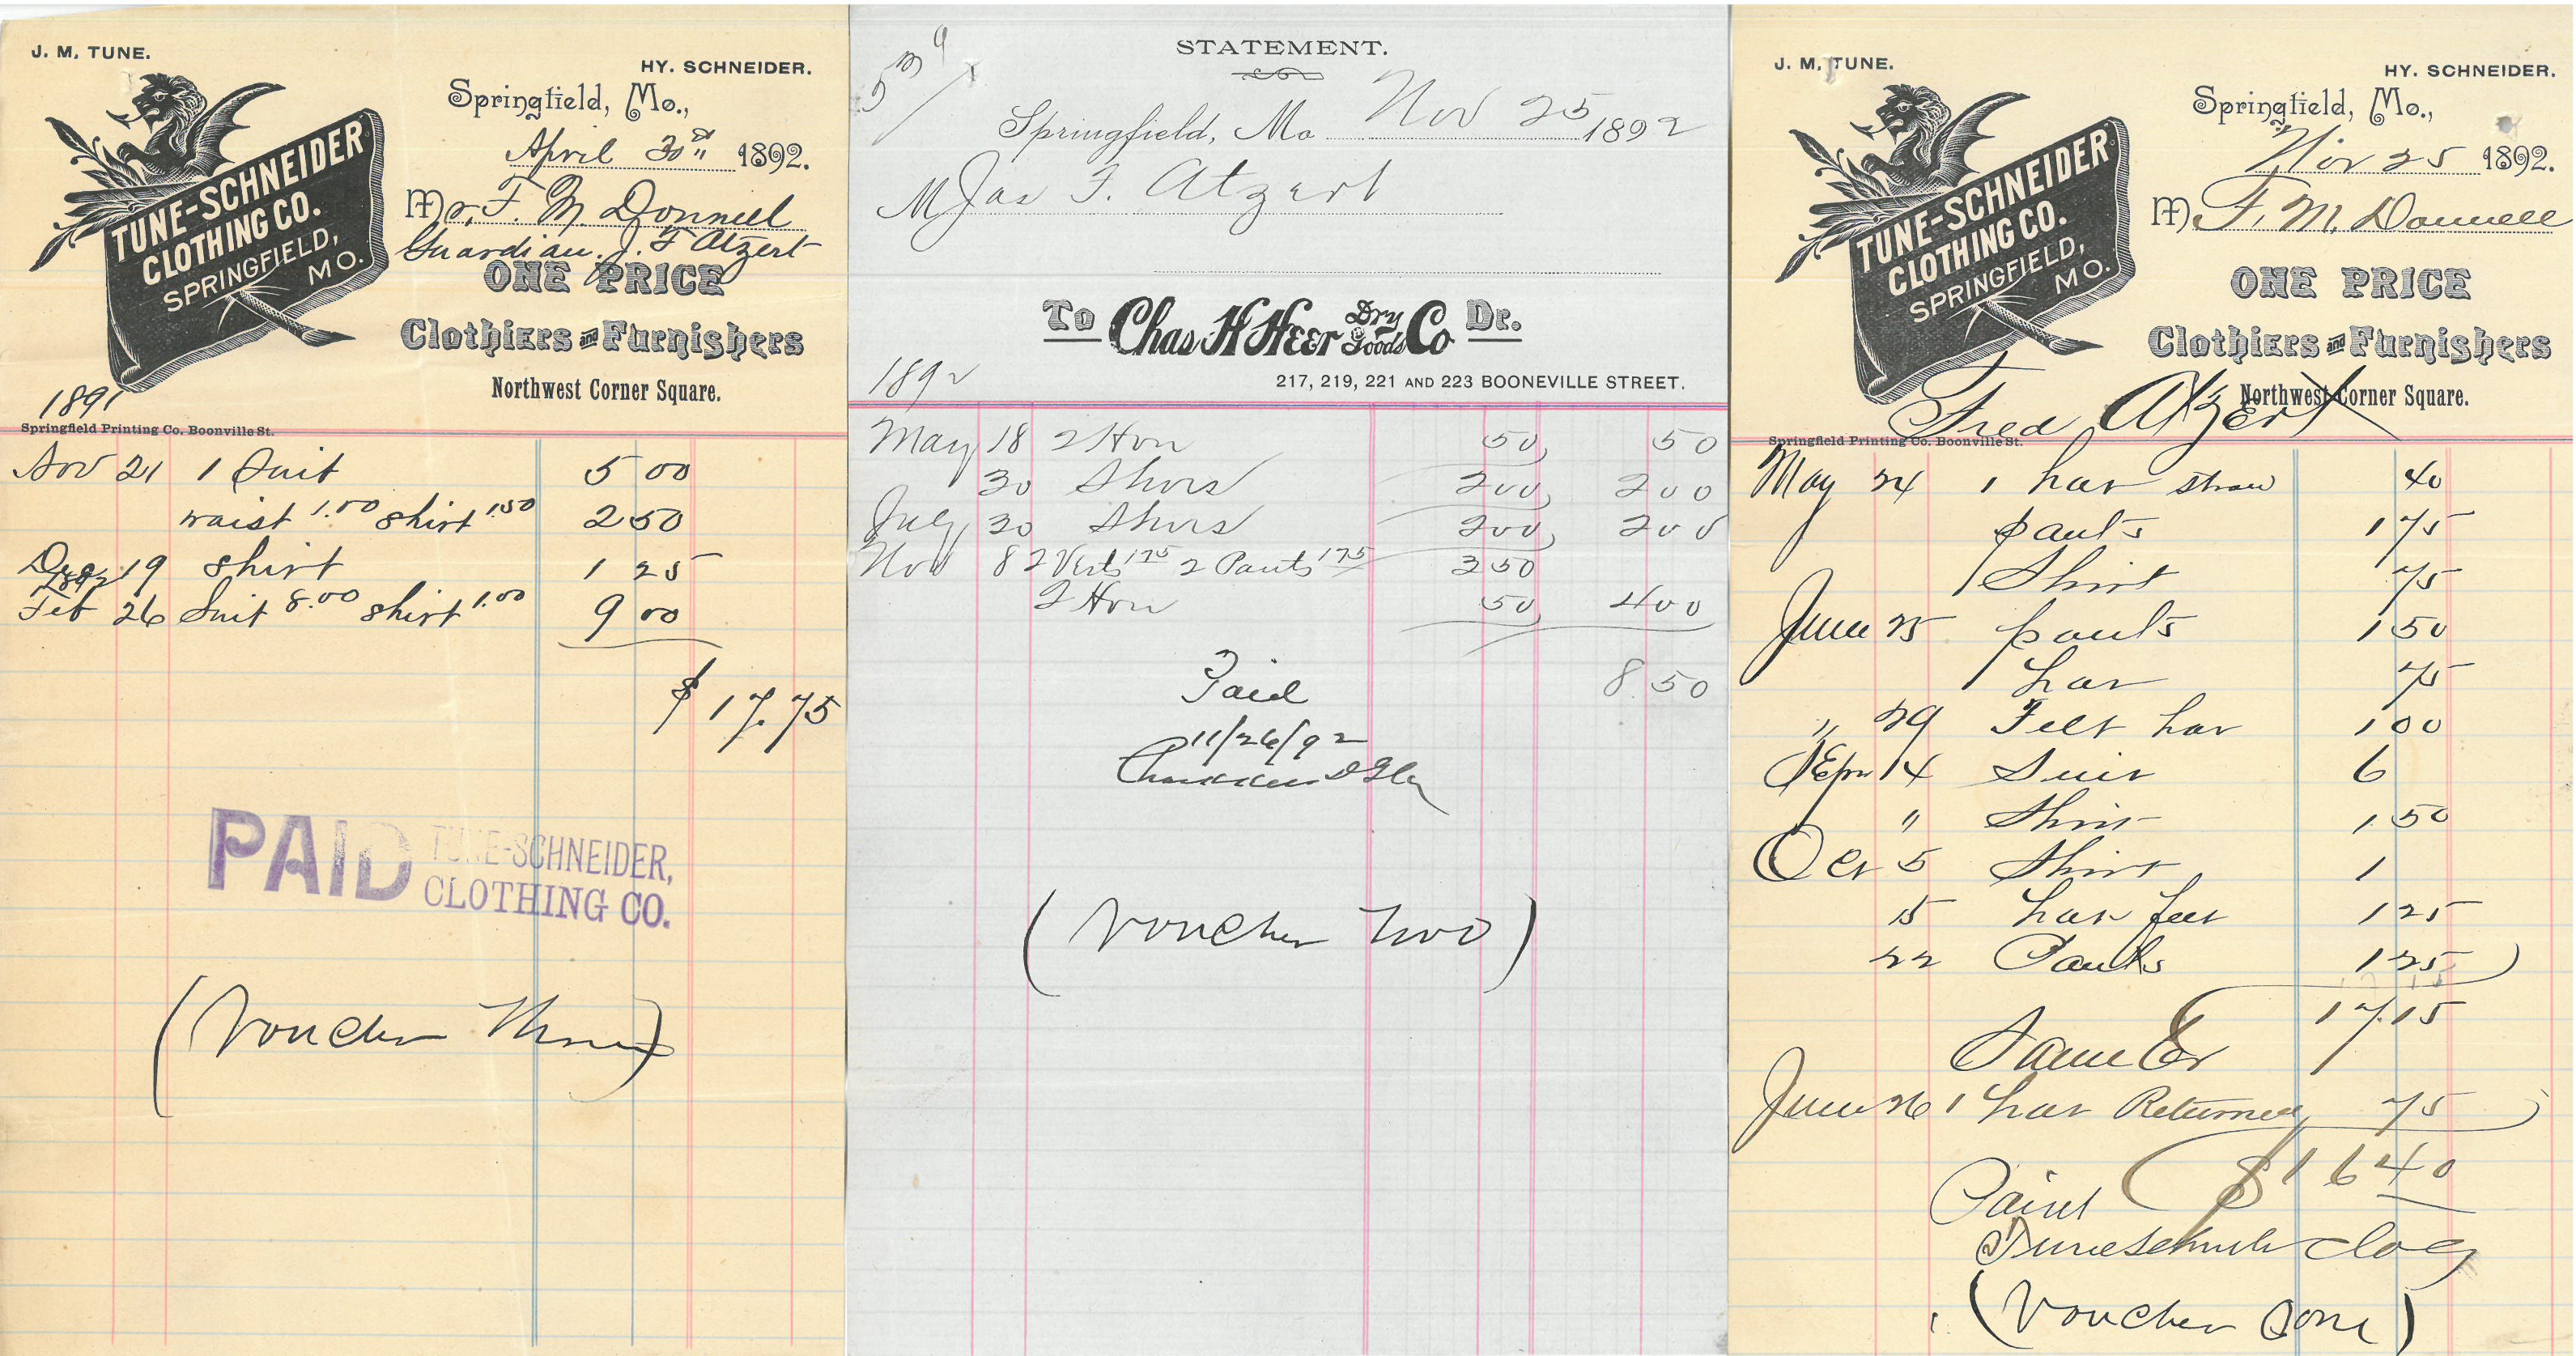 J. M. TUNE.
HY. SCHNEIDER.
TUNE-SCHNEIDER
CLOTHING CO.
SPRINGFIELD,
MO.
Springfield, Mo.,
April 30th 1892.
Mr. F. M. Donnell
Guardian J. F Atzert
ONE PRICE
Clothiers and Furnishers
Northwest Corner Square.
1891
Springfield Printing Co. Boonville St.
Nov 21 1 Suit 5 00
waist 1.00 shirt 1.50 2 50
Dec 19 shirt 1 25
1892
Feb 26 Suit 8.00 shirt 1.00 9 00
$ 17.75
PAID TUNE-SCHNEIDER,
CLOTHING CO.
(Voucher Three)
STATEMENT.
Springfield, Mo Nov 25 1892
M Jas F. Atzert
To Chas H Heer Dry Goods Co Dr.
217, 219, 221 AND 223 BOONEVILLE STREET.
1892
May 18 2 Hon 50 50
30 Shoes 200 200
July 30 Shoes 200 200
Nov 8 2 Vests 175 2 Pants 175 350
2 Hon 50 400
8.50
Paid
11/26/92
(Voucher Two)
J. M. TUNE.
HY. SCHNEIDER.
TUNE-SCHNEIDER
CLOTHING CO.
SPRINGFIELD,
MO.
Springfield, Mo.,
Nov 25 1892.
M F. M. Donnell
ONE PRICE
Clothiers and Furnishers
Northwest Corner Square.
Fred Atzert
Springfield Printing Co. Boonville St.
May 24 1 hat straw 40
pants 1 75
1 Shirt 75
June 25 pants 1 50
1 hat 75
" 29 Felt hat 1 00
Sept 14 Suit 6
" Shirt 1.50
Oct 5 Shirt 1
15 hat felt 1 25
22 Pants 1 25
17.15
Same Cr
June 26 1 hat Returned 75
$ 16 40
Paid
(Voucher One)